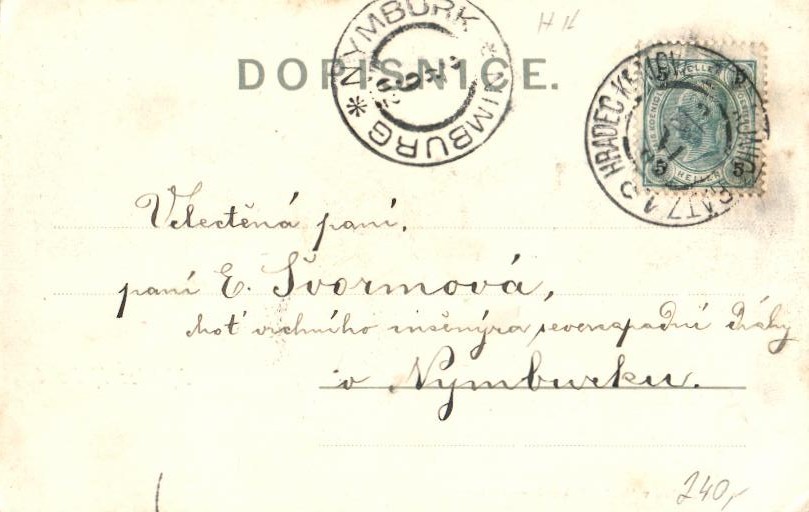 H K
DOPISNICE.
* NYMBURK * NIMBURG
HRADEC KRÁLOVÉ
5 HELLER 5
HELLER
Velectěná paní,
paní E. Švormová,
choť vrchního inženýra severozápadní dráhy
v Nymburku.
240,-